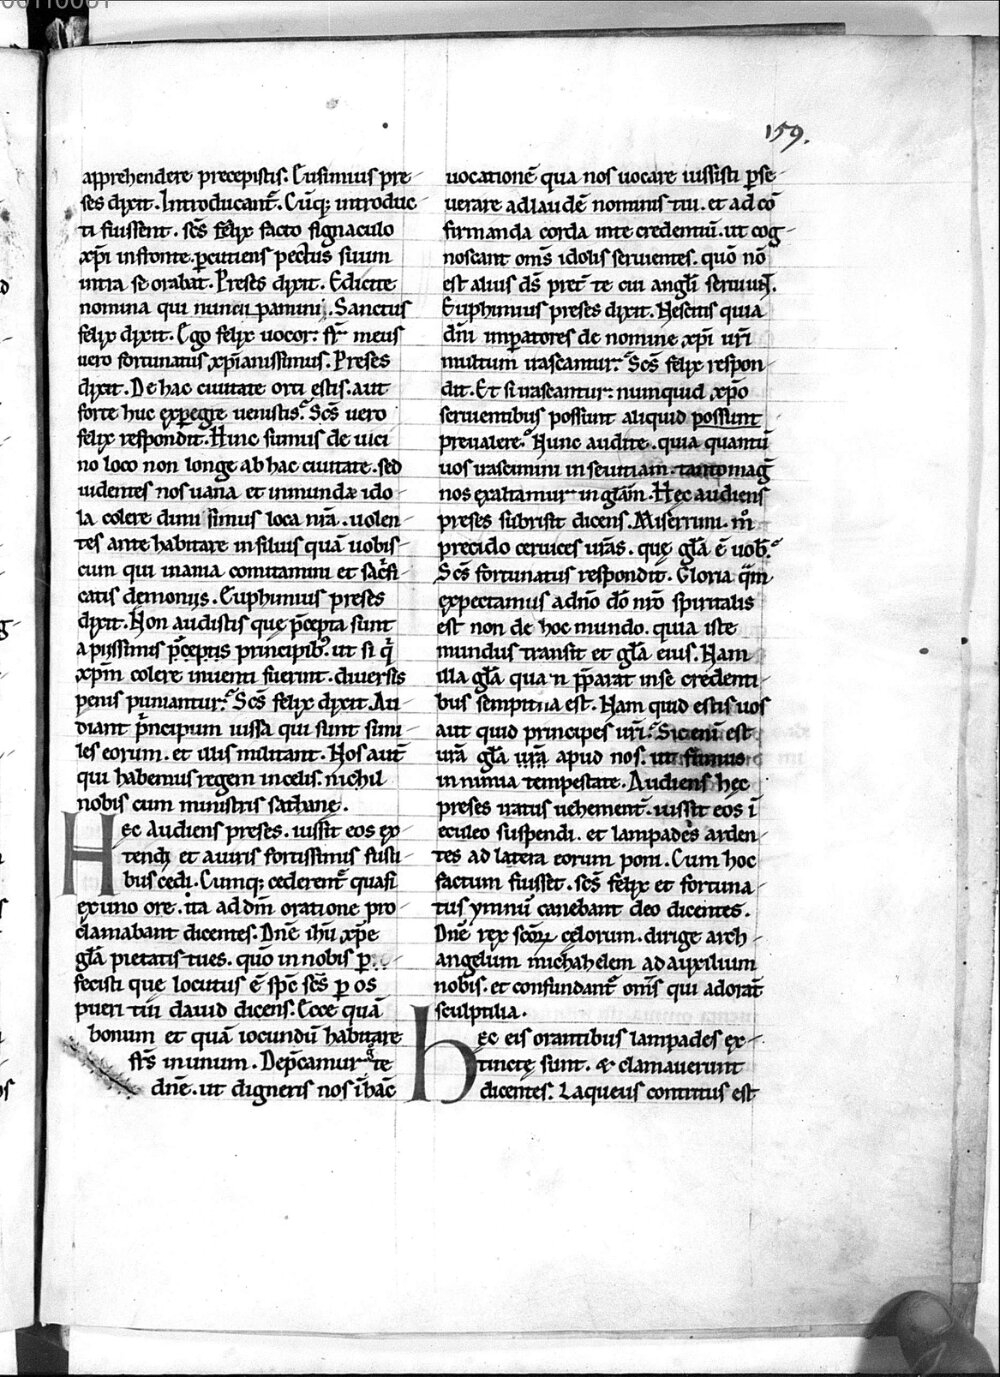 159.
apprehendere precepistis. Eufimius pre-
ses dixit. Introducant̄. Cūq; introduc-
ti fuissent. sc̄s felix facto signaculo
xp̄i in fronte. ꝑcutiens pectus suum
intra se orabat. Preses dixit. Edicite
nomina qui nuncupamini. Sanctus
felix dixit. Ego felix uocor: fr̄ meus
uero fortunatus xp̄ianissimus. Preses
dixit. De hac ciuitate orti estis. aut
forte huc exꝑegre uenistis? Sc̄s uero
felix respondit. Nunc sumus de uici-
no loco non longe ab hac ciuitate. sed
uidentes nos uana et inmunda ido-
la colere dum simus loca nr̄a. uolen-
tes ante habitare in siluis quā uobis-
cum qui inania comitamini et sac̄fi-
catis demoniis. Euphimius preses
dixit. Non audistis que p̄cepta sunt
a piissimis p̄ceptis principib; ut si q̄
xp̄m colere inuenti fuerint. diuersis
penis puniantur? Sc̄s felix dixit. Au-
diant p̄ncipum iussa qui sunt simi-
les eorum. et illis militant. Nos aut̄
qui habemus regem in celis. nichil
nobis cum ministris sathane.
Hec Audiens preses. iussit eos ex-
tendi et a uiris fortissimis fusti-
bus cędi. Cumq; cederent̄ quasi
ex uno ore. ita ad dn̄m oratione pro-
clamabant dicentes. Dn̄e ih̄u xp̄e
gl̄a pietatis tues. quō in nobis ꝑ
fecisti que locutus ē sp̄c sc̄s ꝑ os
pueri tui dauid dicens. Ecce quā
bonum et quā iocundū habitare
fr̄s in unum. Dep̄camur te
dn̄e. ut digneris nos ī hāc
uocationē qua nos uocare iussisti ꝑse-
uerare ad laudē nominis tui. et ad cō
firmanda corda in te credentiū. ut cog-
noscant om̄s idolis seruientes. quō nō
est alius d̄s pret̄ te cui angl̄i seruiunt.
Euphimius preses dixit. Nescitis quia
dn̄i imꝑatores de nomine xp̄i ur̄i
multum irascantur? Sc̄s felix respon-
dit. Et si irascantur: numquid xp̄o
seruientibus possunt aliquid possunt
preualere? Nunc audite. quia quantū
uos irascimini in seuitiam. tanto mag̅
nos exaltamur in gl̄am. Hęc audiens
preses subrisit dicens. Miserrimi. m̊
precido ceruices ur̄as. quę gl̄a ē uob̄?
Sc̄s fortunatus respondit. Gloria q̄m
expectamus a dn̄o dō nr̄o spiritalis
est non de hoc mundo. quia iste
mundus transit et gl̄a eius. Nam
illa gl̄a qua n̄ p̄parat in se credenti-
bus sempitna est. Nam quid estis uos
aut quid principes ur̄i? Sic enī est
ur̄a gl̄a ur̄a apud nos. ut fumus
in nimia tempestate. Audiens hęc
preses iratus uehement̄. iussit eos ī
eculeo suspendi. et lampades arden-
tes ad latera eorum poni. Cum hoc
factum fuisset. sc̄s felix et fortuna-
tus ymnū canebant deo dicentes.
Dn̄e rex sc̄oꝝ cęlorum. dirige arch-
angelum michahelem ad auxilium
nobis. et confundant̄ om̄s qui adorāt
sculptilia.
Hec eis orantibus lampades ex-
tincte sunt. & clamauerunt
dicentes. Laqueus contritus est